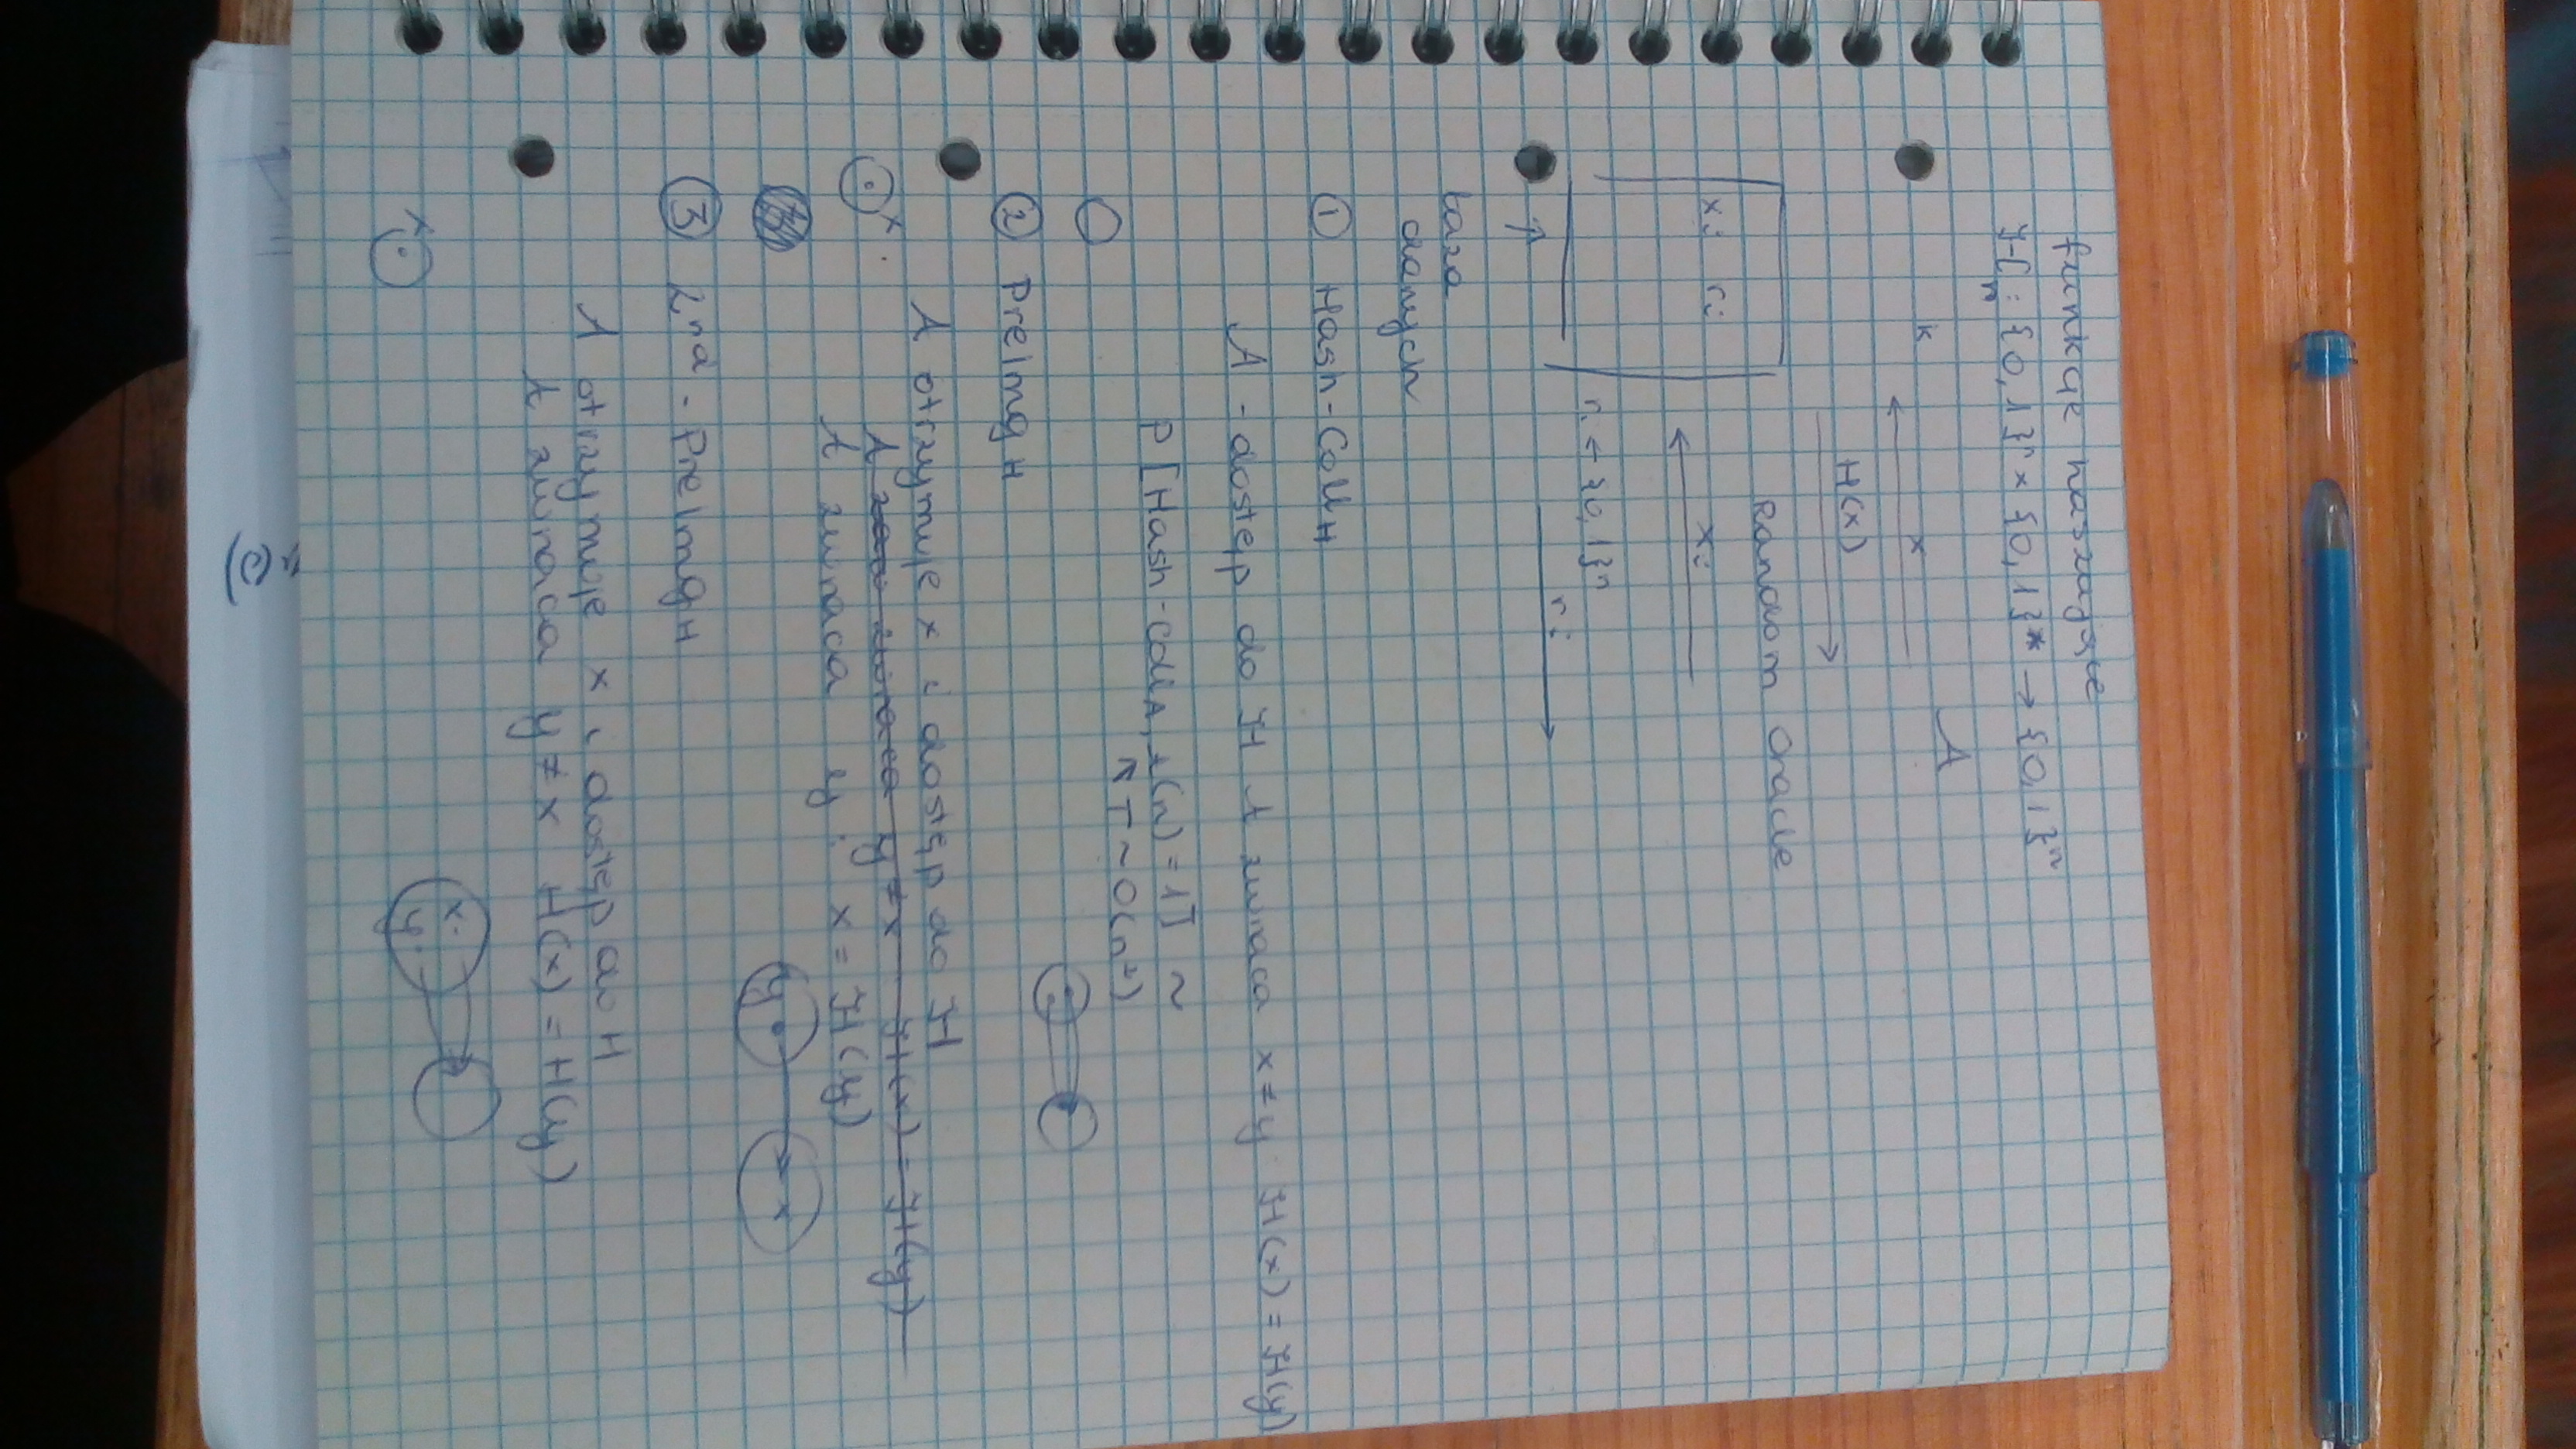 funkcje haszujące
H_n : {0,1}^n × {0,1}* → {0,1}^n
k x A
H(x)
Random Oracle
x_i r_i x_i
r_i ← {0,1}^n
↑ r_i
baza
danych
① Hash-Coll_H
A - dostęp do H A zwraca x≠y H(x) = H(y)
P[Hash-Coll_A, (n) = 1] ~
↖ T ~ O(n²)
② PreImg_H
A otrzymuje x i dostęp do H
x A zwraca y≠x H(x) = H(y)
A zwraca y: x = H(y)
y x
③ 2^nd - PreImg_H
A otrzymuje x i dostęp do H
A zwraca y≠x H(x) = H(y)
x x y